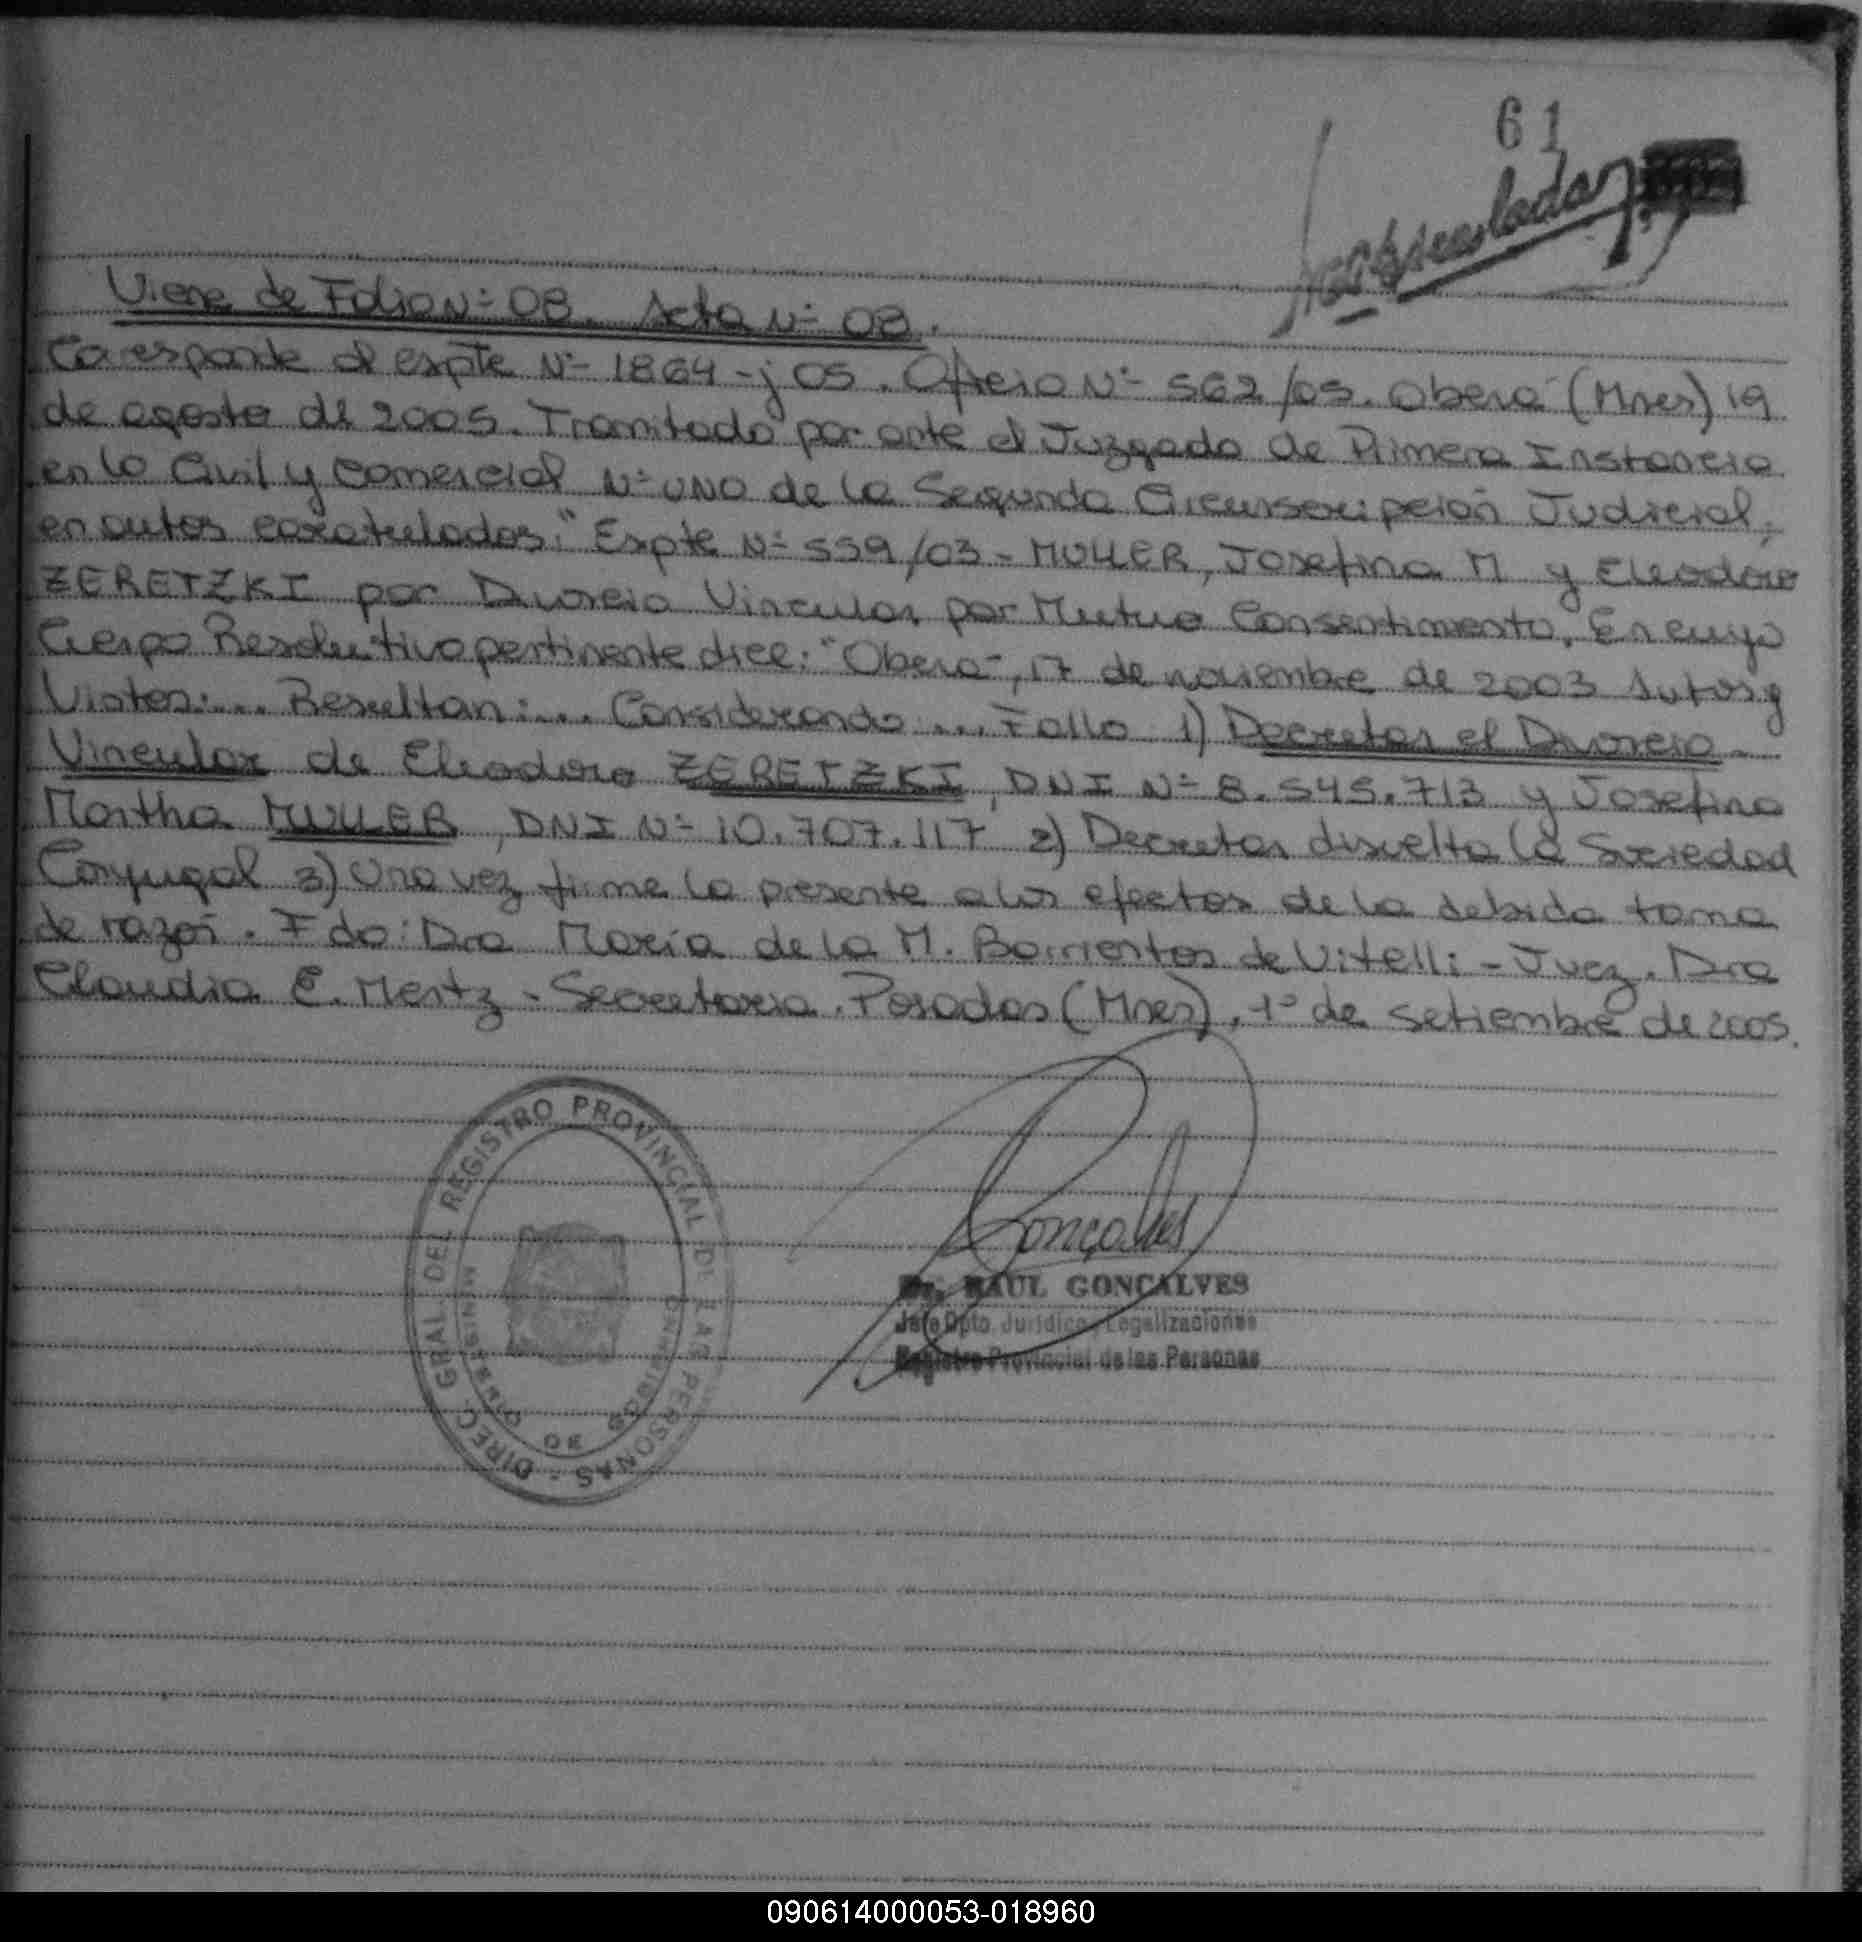 61
Viene de Folio Nº 08. Acta Nº 08.
Corresponde al expte Nº 1864-j 05. Oficio Nº 562/05. Oberá (Mnes) 19
de agosto de 2005. Tramitado por ante el Juzgado de Primera Instancia
en lo Civil y Comercial Nº UNO de la Segunda Circunscripción Judicial,
en autos caratulados: "Expte Nº 559/03 - MULLER, Josefina M y Eleodoro
ZERETZKI por Divorcio Vincular por Mutuo Consentimiento. En cuyo
Cuerpo Resolutivo pertinente dice: "Oberá, 17 de noviembre de 2003 Autos y
Vistos:... Resultan:... Considerando... Fallo 1) Decretar el Divorcio
Vincular de Eleodoro ZERETZKI, DNI Nº 8.545.713 y Josefina
Martha MULLER, DNI Nº 10.707.117 2) Decretar disuelta la Sociedad
Conyugal 3) Una vez firme la presente a los efectos de la debida toma
de razón. Fdo: Dra María de la M. Barrientos de Vitelli - Juez. Dra
Claudia E. Mertz - Secretaria. Posadas (Mnes), 1º de setiembre de 2005.
DIREC. GRAL DEL REGISTRO PROVINCIAL DE LAS PERSONAS -
Gonçalves
Dr. RAUL GONCALVES
Jefe Dpto. Jurídico, Legalizaciones
Registro Provincial de las Personas
090614000053-018960